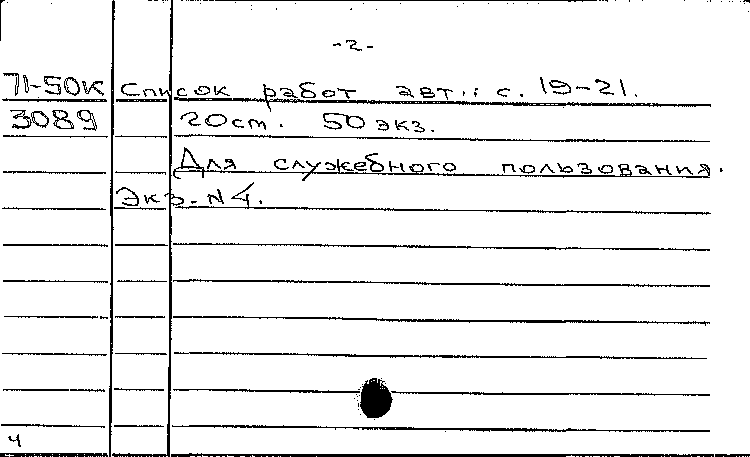 -2-
71-50К Список работ авт.: с. 19-21.
3089 20см. 50 экз.
Для служебного пользования.
Экз. N 4.
ч